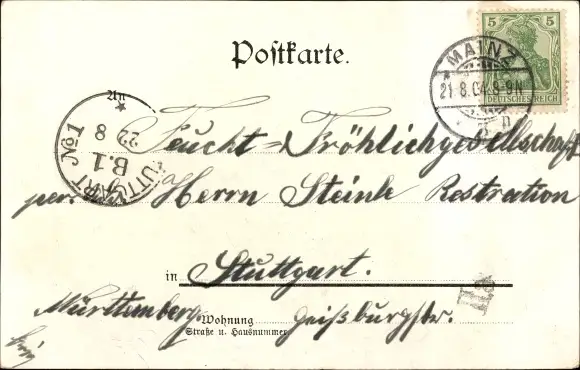 Postkarte.
5 5
DEUTSCHES REICH
MAINZ
21.8.04.8-9N
An
STUTTGART No 1
22 8
B.1
Feucht-Fröhlichgesellschaft
Herrn Steinle Restration
in Stuttgart.
Württemberg.
Wohnung Geißburgstr.
Straße u. Hausnummer